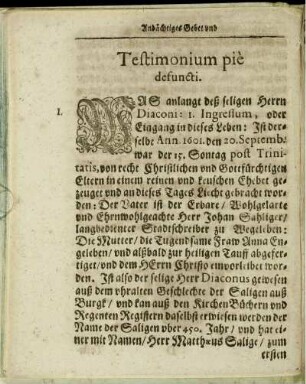 Andächtiges Gebet und
Testimonium piè
defuncti.
1.
WAS anlangt deß seligen Herrn
Diaconi: 1. Ingressum, oder
Eingang in dieses Leben: Ist der-
selbe Ann. 1601. den 20. Septemb.
war der 15. Sontag post Trini-
tatis, von recht Christlichen und Gottfürchtigen
Eltern in einem reinen und keuschen Ehebet ge-
zeuget und an dieses Tages Liecht gebracht wor-
den: Der Vater ist der Erbare / Wohlgelarte
und Ehrnwohlgeachte Herr Johan Sahliger /
langbedienter Stadtschreiber zu Wegeleben:
Die Mutter / die Tugendsame Fraw Anna En-
geleben / und alßbald zur heiligen Tauff abgefer-
tiget / und dem HErrn Christo einvorleibet wor-
den. Ist also der selige Herr Diaconus gewesen
auß dem vhralten Geschlechte der Saligen auß
Burgk / und kan auß den Kirchen Büchern und
Regenten Registern daselbst erwiesen werden der
Name der Saligen vber 450. Jahr / und hat ei-
ner mit Namen / Herr Matthæus Salige / zum
ersten